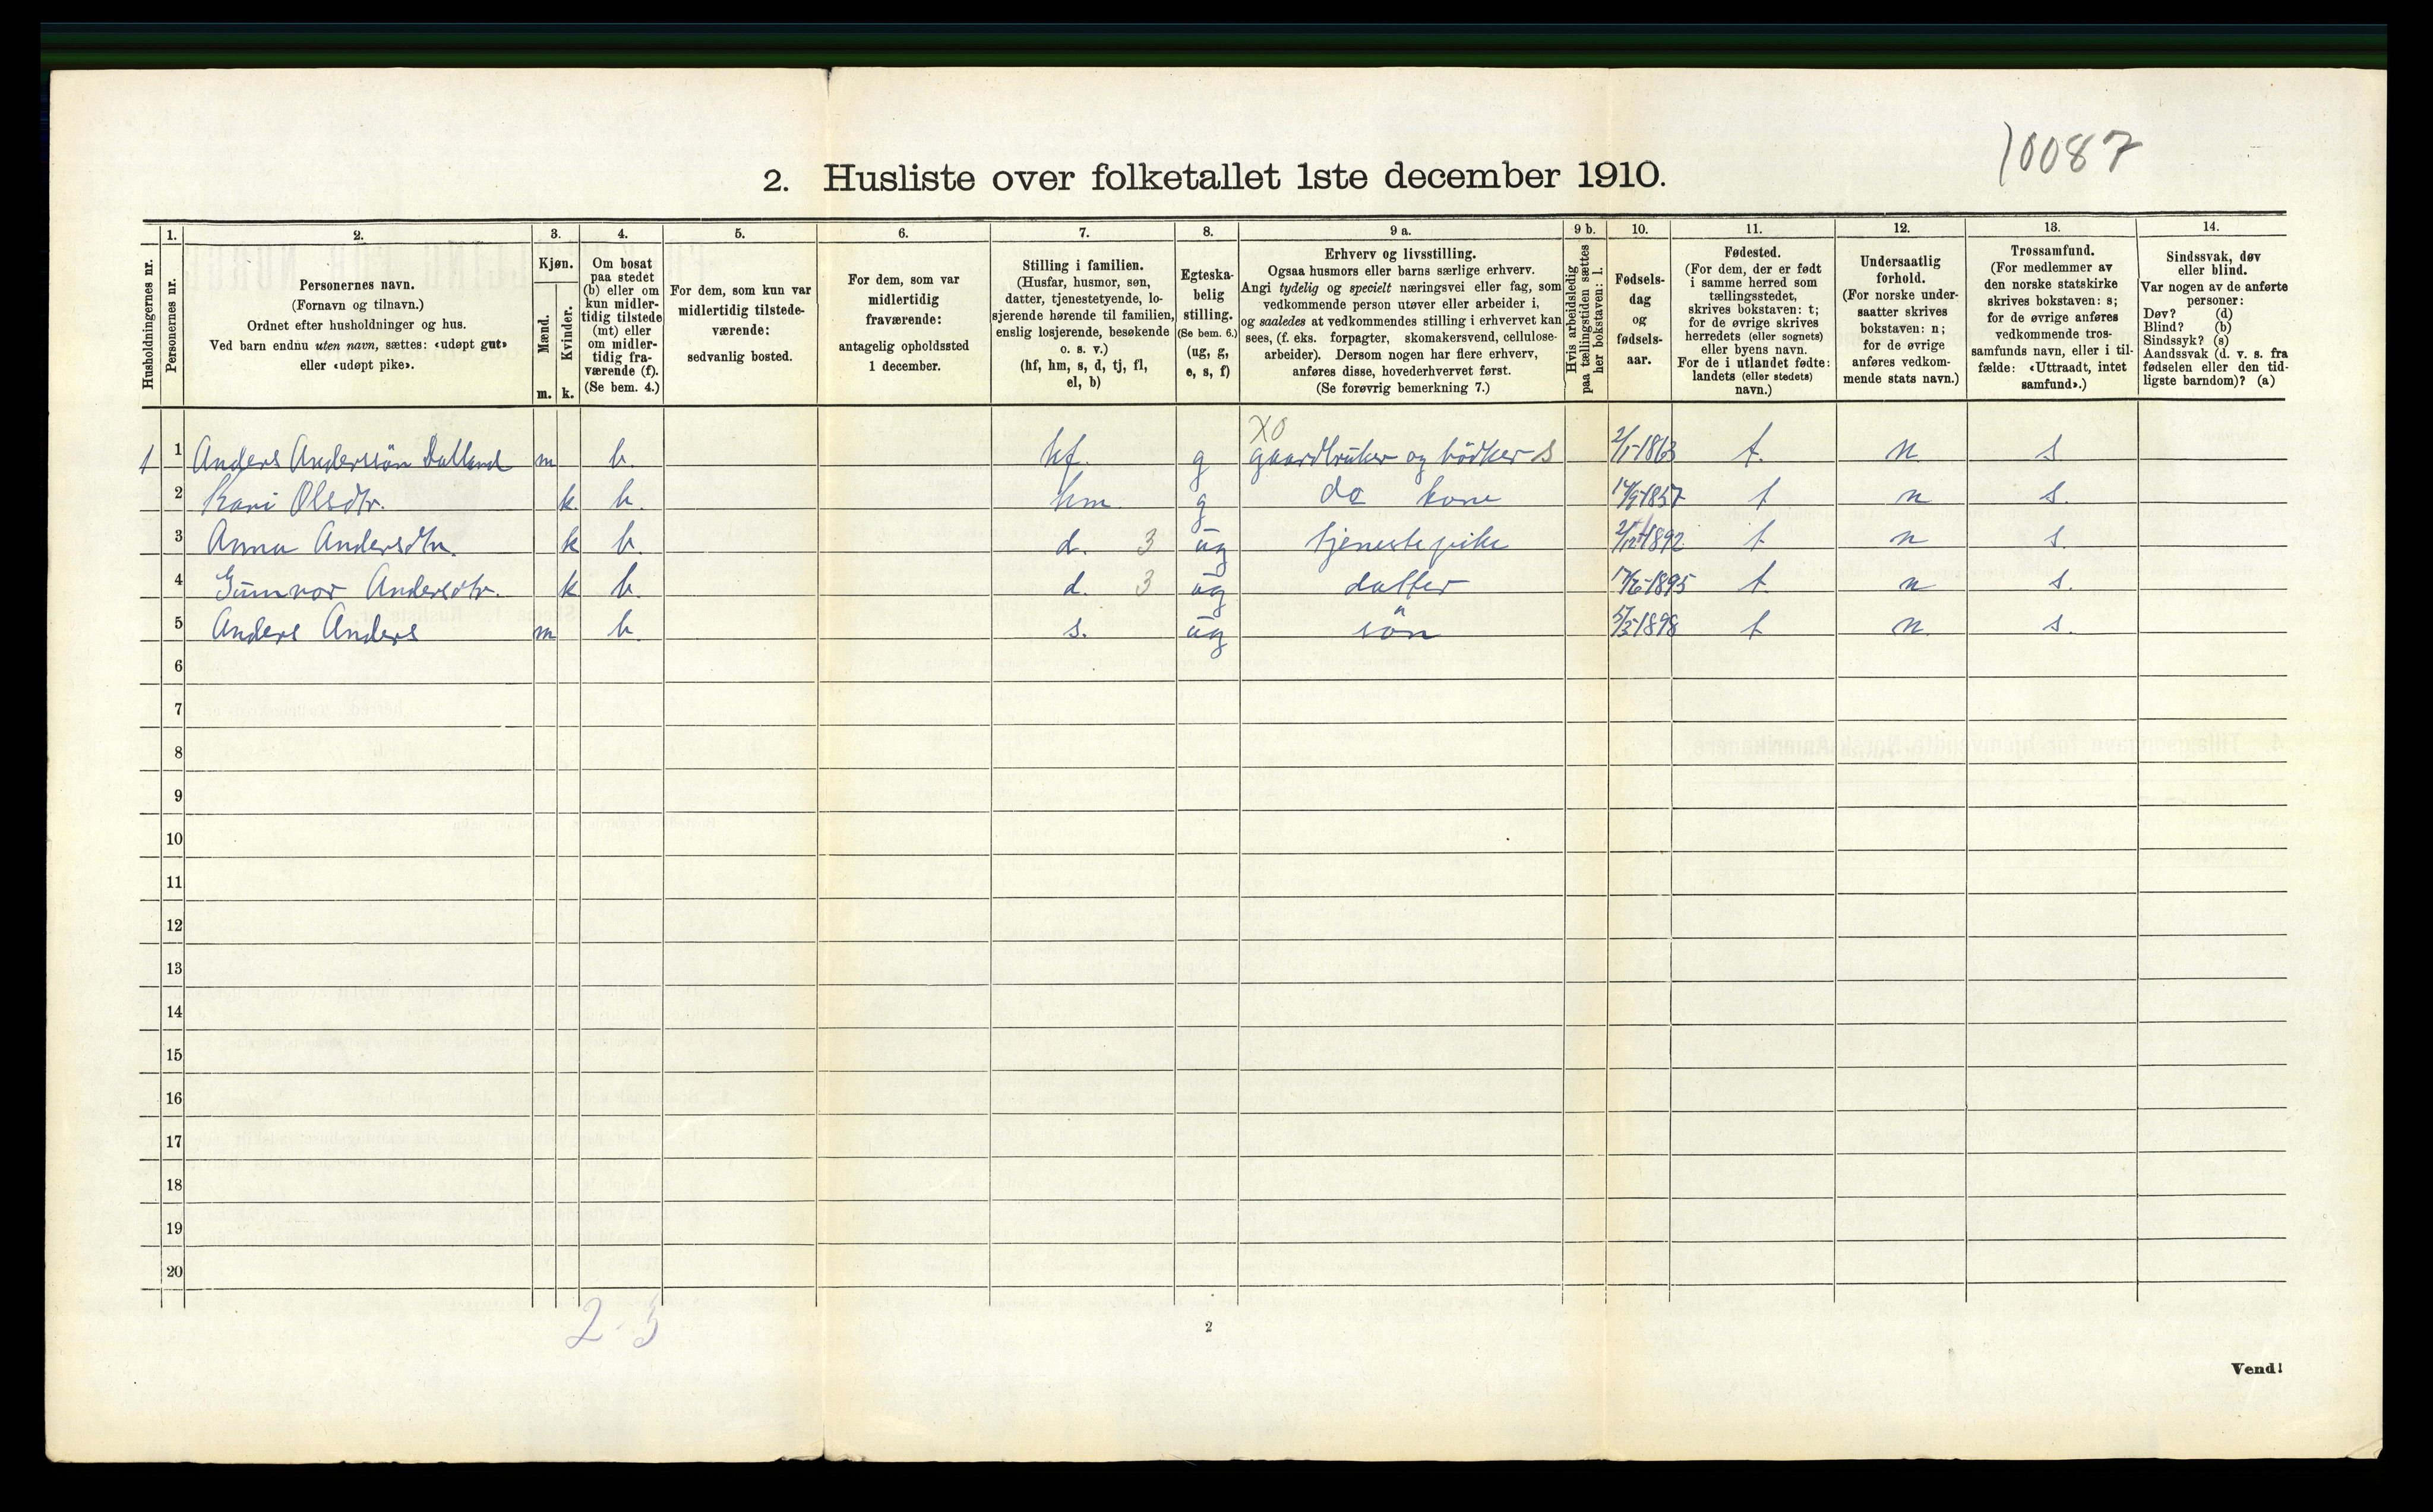 10087
2. Husliste over folketallet 1ste december 1910.
Husholdningernes nr.
1.
Personernes nr.
2.
Personernes navn.
(Fornavn og tilnavn.)
Ordnet efter husholdninger og hus.
Ved barn endnu uten navn, sættes: «udøpt gut»
eller «udøpt pike».
3.
Kjøn.
Mænd.
Kvinder.
m. k.
4.
Om bosat
paa stedet
(b) eller om
kun midler-
tidig tilstede
(mt) eller
om midler-
tidig fra-
værende (f).
(Se bem. 4.)
5.
For dem, som kun var
midlertidig tilstede-
værende:
sedvanlig bosted.
6.
For dem, som var
midlertidig
fraværende:
antagelig opholdssted
1 december.
7.
Stilling i familien.
(Husfar, husmor, søn,
datter, tjenestetyende, lo-
sjerende hørende til familien,
enslig losjerende, besøkende
o. s. v.)
(hf, hm, s, d, tj, fl,
el, b)
8.
Egteska-
belig
stilling.
(Se bem. 6.)
(ug, g,
e, s, f)
9 a.
Erhverv og livsstilling.
Ogsaa husmors eller barns særlige erhverv.
Angi tydelig og specielt næringsvei eller fag, som
vedkommende person utøver eller arbeider i,
og saaledes at vedkommendes stilling i erhvervet kan
sees, (f. eks. forpagter, skomakersvend, cellulose-
arbeider). Dersom nogen har flere erhverv,
anføres disse, hovederhvervet først.
(Se forøvrig bemerkning 7.)
9 b.
Hvis arbeidsledig
paa tællingstiden sættes
her bokstaven: l.
10.
Fødsels-
dag
og
fødsels-
aar.
11.
Fødested.
(For dem, der er født
i samme herred som
tællingsstedet,
skrives bokstaven: t;
for de øvrige skrives
herredets (eller sognets)
eller byens navn.
For de i utlandet fødte:
landets (eller stedets)
navn.)
12.
Undersaatlig
forhold.
(For norske under-
saatter skrives
bokstaven: n;
for de øvrige
anføres vedkom-
mende stats navn.)
13.
Trossamfund.
(For medlemmer av
den norske statskirke
skrives bokstaven: s;
for de øvrige anføres
vedkommende tros-
samfunds navn, eller i til-
fælde: «Uttraadt, intet
samfund».)
14.
Sindssvak, døv
eller blind.
Var nogen av de anførte
personer:
Døv? (d)
Blind? (b)
Sindssyk? (s)
Aandssvak (d. v. s. fra
fødselen eller den tid-
ligste barndom)? (a)
X0
1 1 Anders Anderssön Dalland m b. hf. g gaardbruker og bödker S 2/1-1863 t. n. s
2 Kari Olsdtr. k. b. hm. g do kone 1857 t n s.
3 Anna Andersdtr. k b. d. 3 ug tjenestepike 1892 t n s.
4 Gunvor Andersdtr. k b. d. 3 ug datter 17/6-1895 t. n s.
5 Anders Anders m b. s. ug sön 1898 t n. s.
6
7
8
9
10
11
12
13
14
15
16
17
18
19
20
2-5
2
Vend!